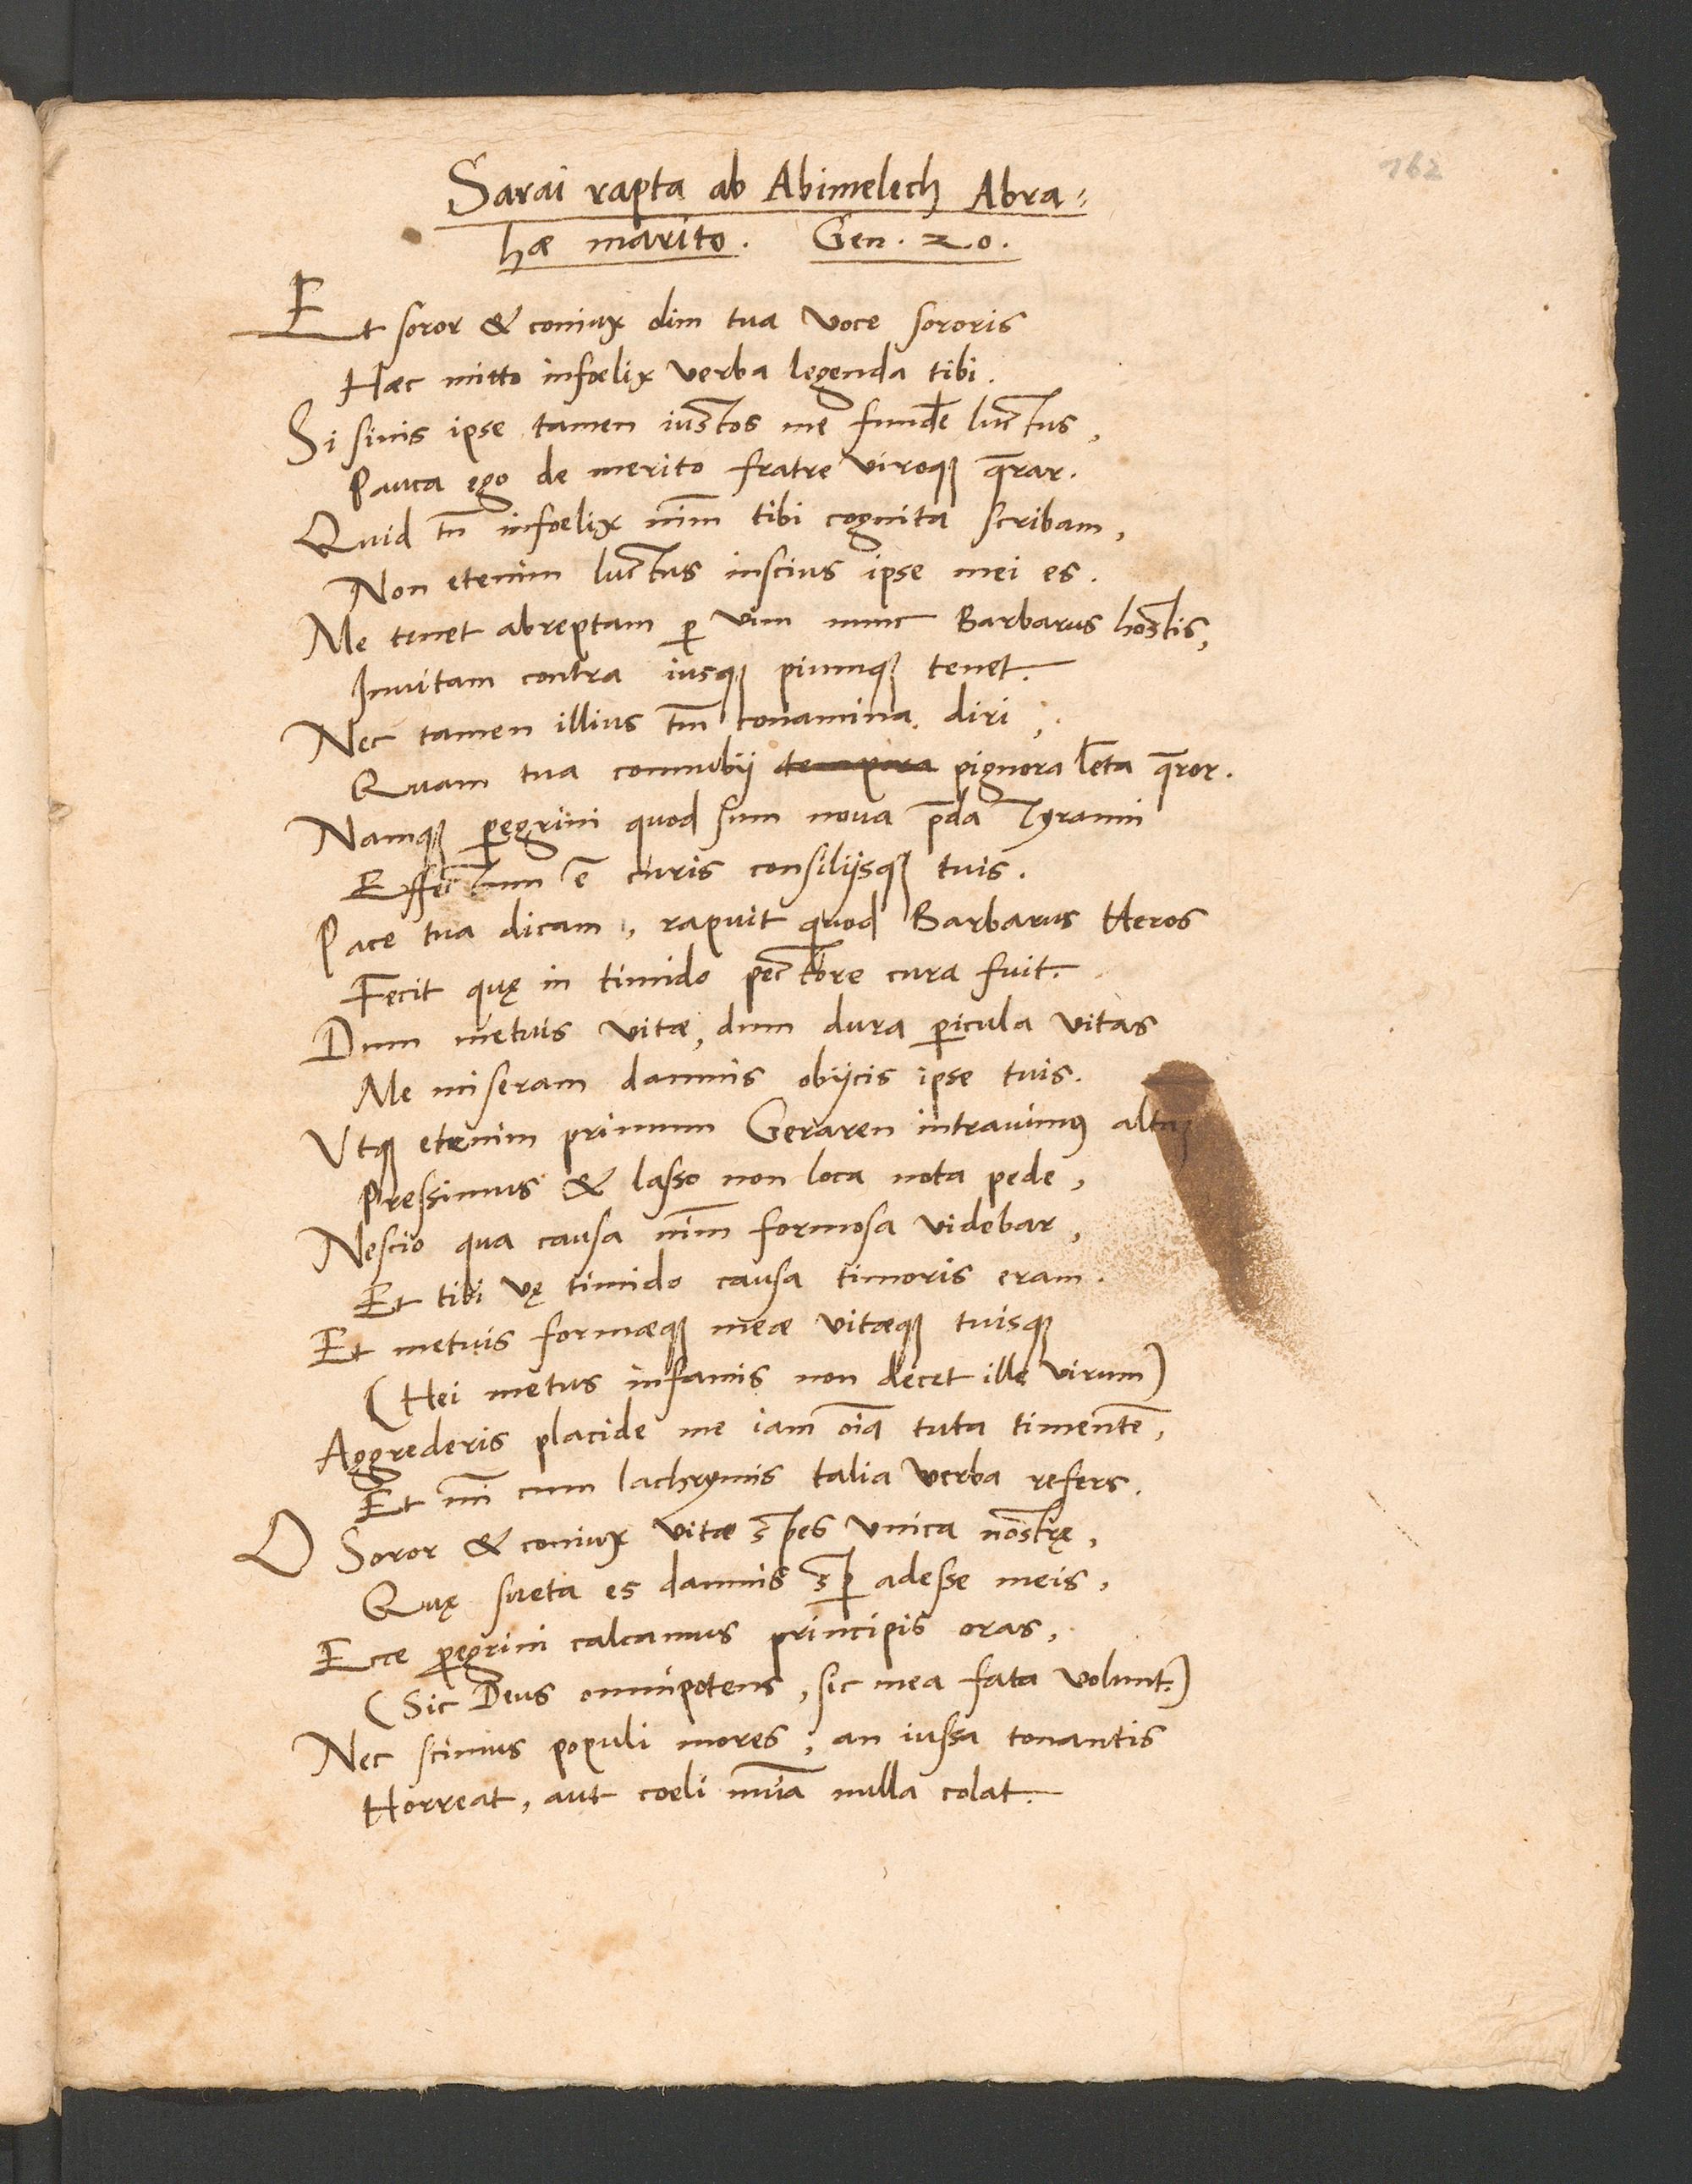 162
Sarai rapta ab Abimelech Abra-
hæ marito. Gen. 20.
Et soror & coniux dim tua voce sororis
Hæc mitto infœlix verba legenda tibi.
Si sinis ipse tamen iustos me fundẽ luctus,
Pauca ego de merito fratre viroqꝫ q̃rar.
Quid tñ infœlix nim̃ tibi cognita scribam,
Non etenim luctus inscius ipse mei es.
Me tenet abreptam ꝑ vim nunc Barbarus hostis,
Inuitam contra iusqꝫ piumqꝫ tenet.
Nec tamen illius tm̃ conamina diri,
Quam tua connubij pignora lẽta q̃ror.
Namqꝫ ꝑegrini quod sum noua p̃da Tyranni
Effectum ẽ curis consilijsqꝫ tuis.
Pace tua dicam, rapuit quod Barbarus Heros
Fecit quę in timido pectore cura fuit.
Dum metuis vitæ, dum dura ꝑicula vitas
Me miseram damnis obijcis ipse tuis.
Vtqꝫ etenim primum Geraren intrauimꝰ
Pressimus & lasso non loca nota pede,
Nescio qua causa nim̃ formosa videbar,
Et tibi vę timido causa timoris eram.
Et metuis formæqꝫ meæ vitæqꝫ tuisqꝫ
(Hei metus infamis non decet ille virum)
Aggrederis placide me iam oı̃a tuta timentẽ,
Et mı̃ cum lachrymis talia verba refers.
O Soror & coniux vitæ spes vnica nostrę,
Quę sueta es damnis sꝑ adesse meis,
Ecce ꝑegrini calcamus principis oras,
(Sic Deus omnipotens, sic mea fata volunt.)
Nec scimus populi mores, an iussa tonantis
Horreat, aut coeli nuı̃a nulla colat.